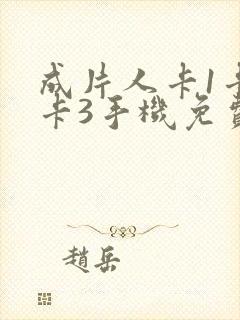 成片人卡1卡
卡3手機免費
趙岳